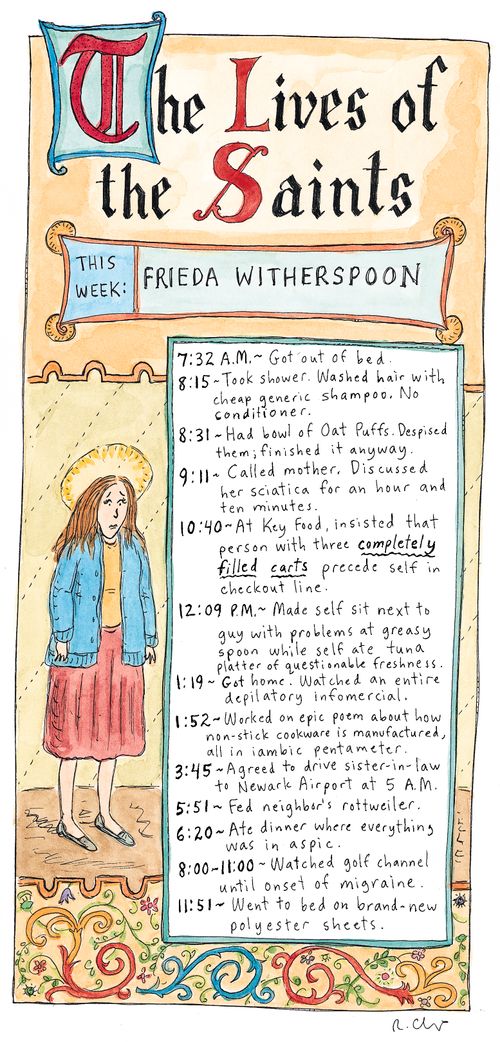 The Lives of
the Saints
THIS
WEEK:
FRIEDA WITHERSPOON
7:32 A.M.~ Got out of bed.
8:15~Took shower. Washed hair with
cheap generic shampoo. No
conditioner.
8:31~Had bowl of Oat Puffs. Despised
them; finished it anyway.
9:11~ Called mother. Discussed
her sciatica for an hour and
ten minutes.
10:40~At Key Food, insisted that
person with three completely
filled carts precede self in
checkout line.
12:09 P.M.~ Made self sit next to
guy with problems at greasy
spoon while self ate tuna
platter of questionable freshness.
1:19~ Got home. Watched an entire
depilatory infomercial.
1:52~Worked on epic poem about how
non-stick cookware is manufactured,
all in iambic pentameter.
3:45~Agreed to drive sister-in-law
to Newark Airport at 5 A.M.
5:51~ Fed neighbor's rottweiler.
6:20~ Ate dinner where everything
was in aspic.
8:00-11:00~ Watched golf channel
until onset of migraine.
11:51~ Went to bed on brand-new
polyester sheets.